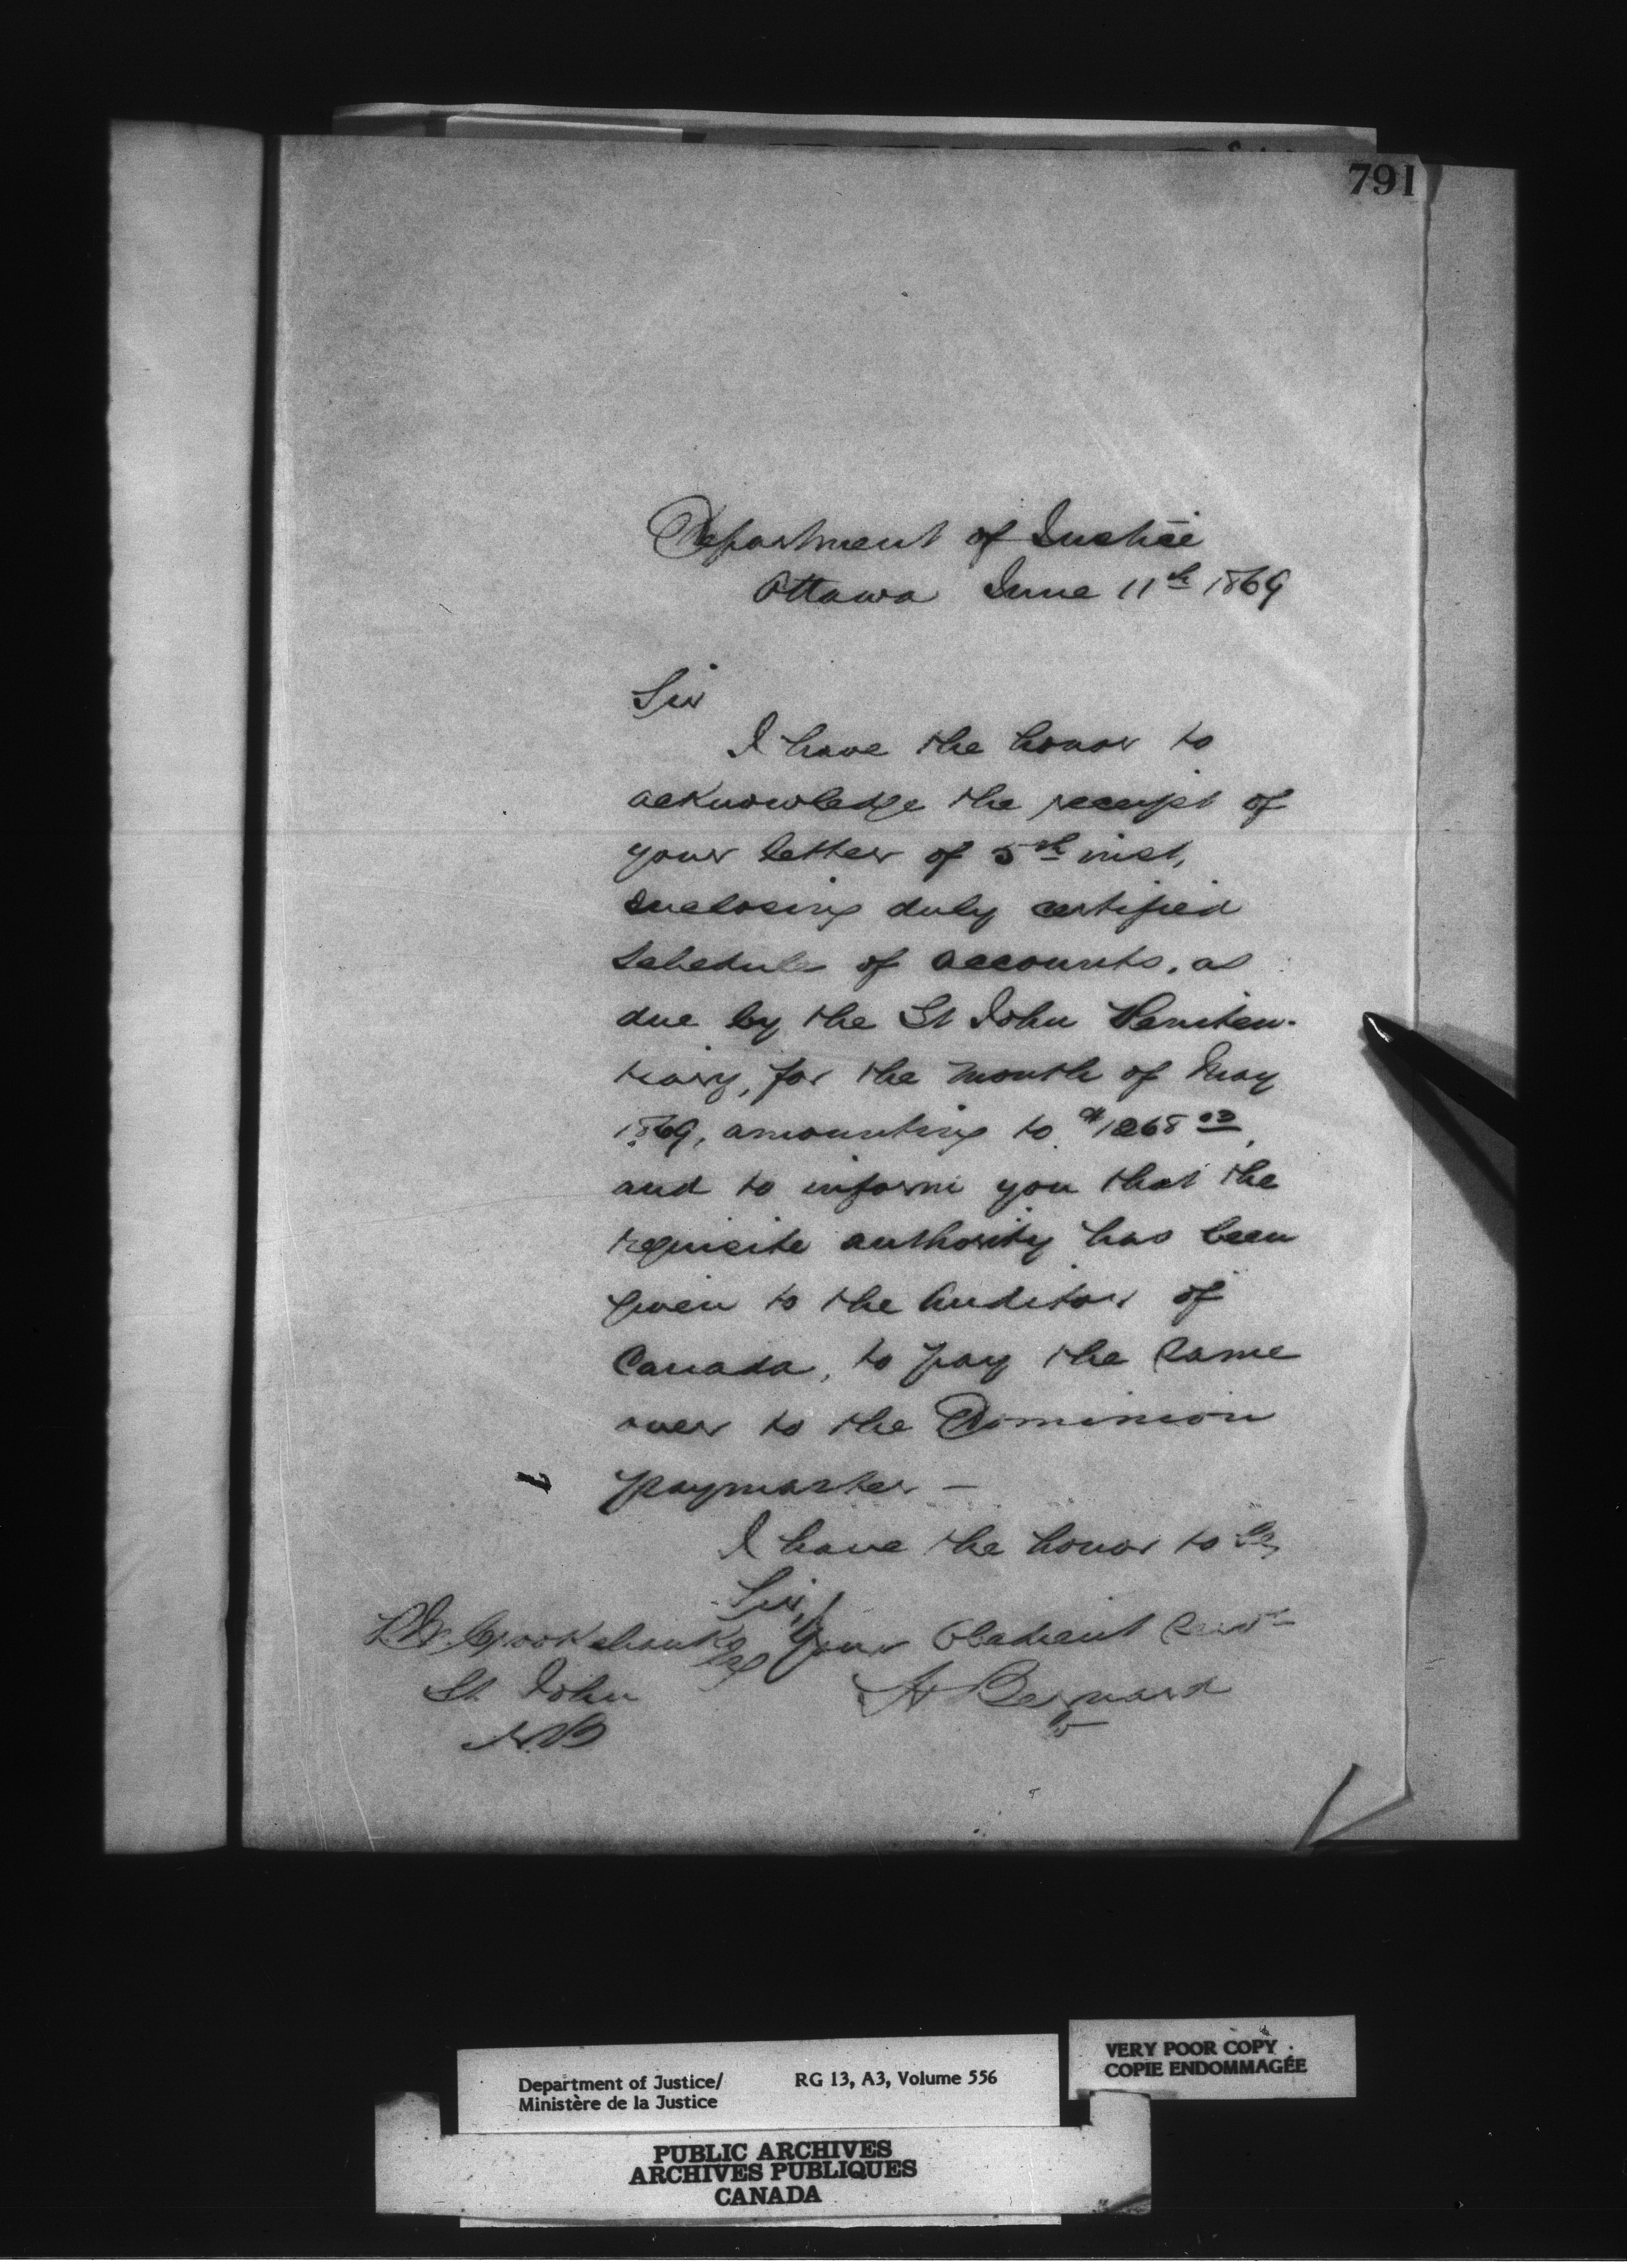 791
Department of Justice
Ottawa June 11th 1869
Sir
I have the honor to
acknowledge the receipt of
your letter of 5th inst,
enclosing duly certified
Schedule of accounts, as
due by the St John Peniten-
tiary, for the month of May
1869, amounting to $1268
and to inform you that the
requisite authority has been
given to the Auditor of
Canada, to pay the same
over to the Dominion
paymaster –
I have the honor to be
Sir,
Your Obedient Servt
Crookshank Esq
A Bernard
St John
N.B
Department of Justice/
Ministère de la Justice
RG 13, A3, Volume 556
VERY POOR COPY
COPIE ENDOMMAGÉE
PUBLIC ARCHIVES
ARCHIVES PUBLIQUES
CANADA